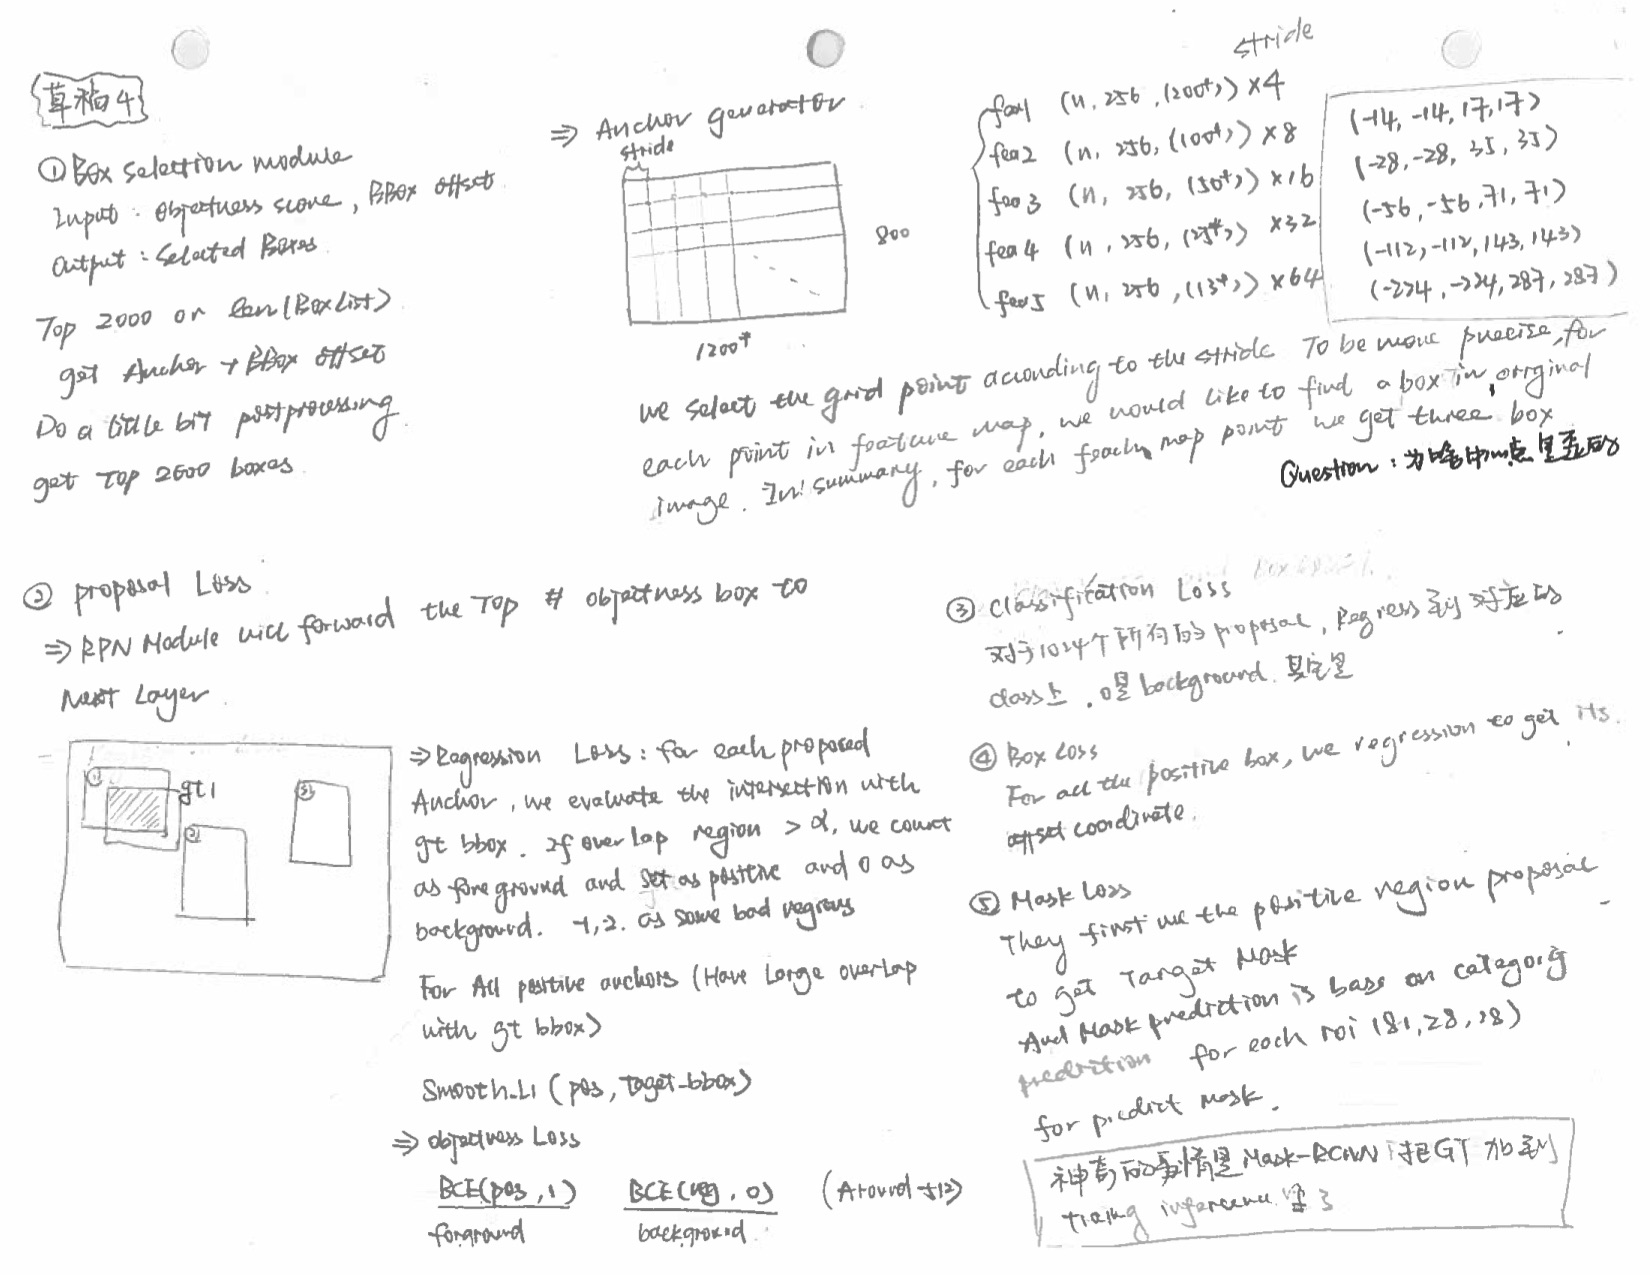 草稿4
① Box selection module
Input : Objectness score, BBox offset
Output : Selected Boxes
Top 2000 or len(BoxList)
get Anchor + BBox offset
Do a little bit postprocessing
get Top 2000 boxes
⇒ Anchor generator
stride
800
1200⁺
stride
fea1 (n, 256, (200⁺)) ×4
fea2 (n, 256, (100⁺)) ×8
fea3 (n, 256, (50⁺)) ×16
fea4 (n, 256, (25⁺)) ×32
fea5 (n, 256, (13⁺)) ×64
(-14, -14, 17, 17)
(-28, -28, 35, 35)
(-56, -56, 71, 71)
(-112, -112, 143, 143)
(-224, -224, 287, 287)
we select the grid point according to the stride To be more precise, for
each point in feature map, we would like to find a box in original
image. In summary, for each map point we get three box
Question : 为啥中心点是歪的
② proposal Loss
⇒ RPN Module will forward the Top # objectness box to
Next Layer
①
gt1
②
③
⇒ Regression Loss : for each proposed
Anchor, we evaluate the intersection with
gt bbox. If overlap region > α, we count
as foreground and set as positive and 0 as
background. -1,-2. as some bad regions
For All positive anchors (Have Large overlap
with gt bbox)
Smooth-L1 (pos, Taget-bbox)
⇒ objectness Loss
BCE(pos, 1) BCE(neg, 0) (Around 512)
forground background
③ Classification Loss
对于1024个所有的proposal, Regress到对应的
class上. 0是background. 其它是
④ Box Loss
For all the positive box, we regression to get its
offset coordinate.
⑤ Mask Loss
They first use the positive region proposal
to get Target Mask
And Mask prediction is base on category
prediction for each roi (81, 28, 28)
for predict Mask.
神奇的事情是Mask-RCNN 把GT加到
inference 里了